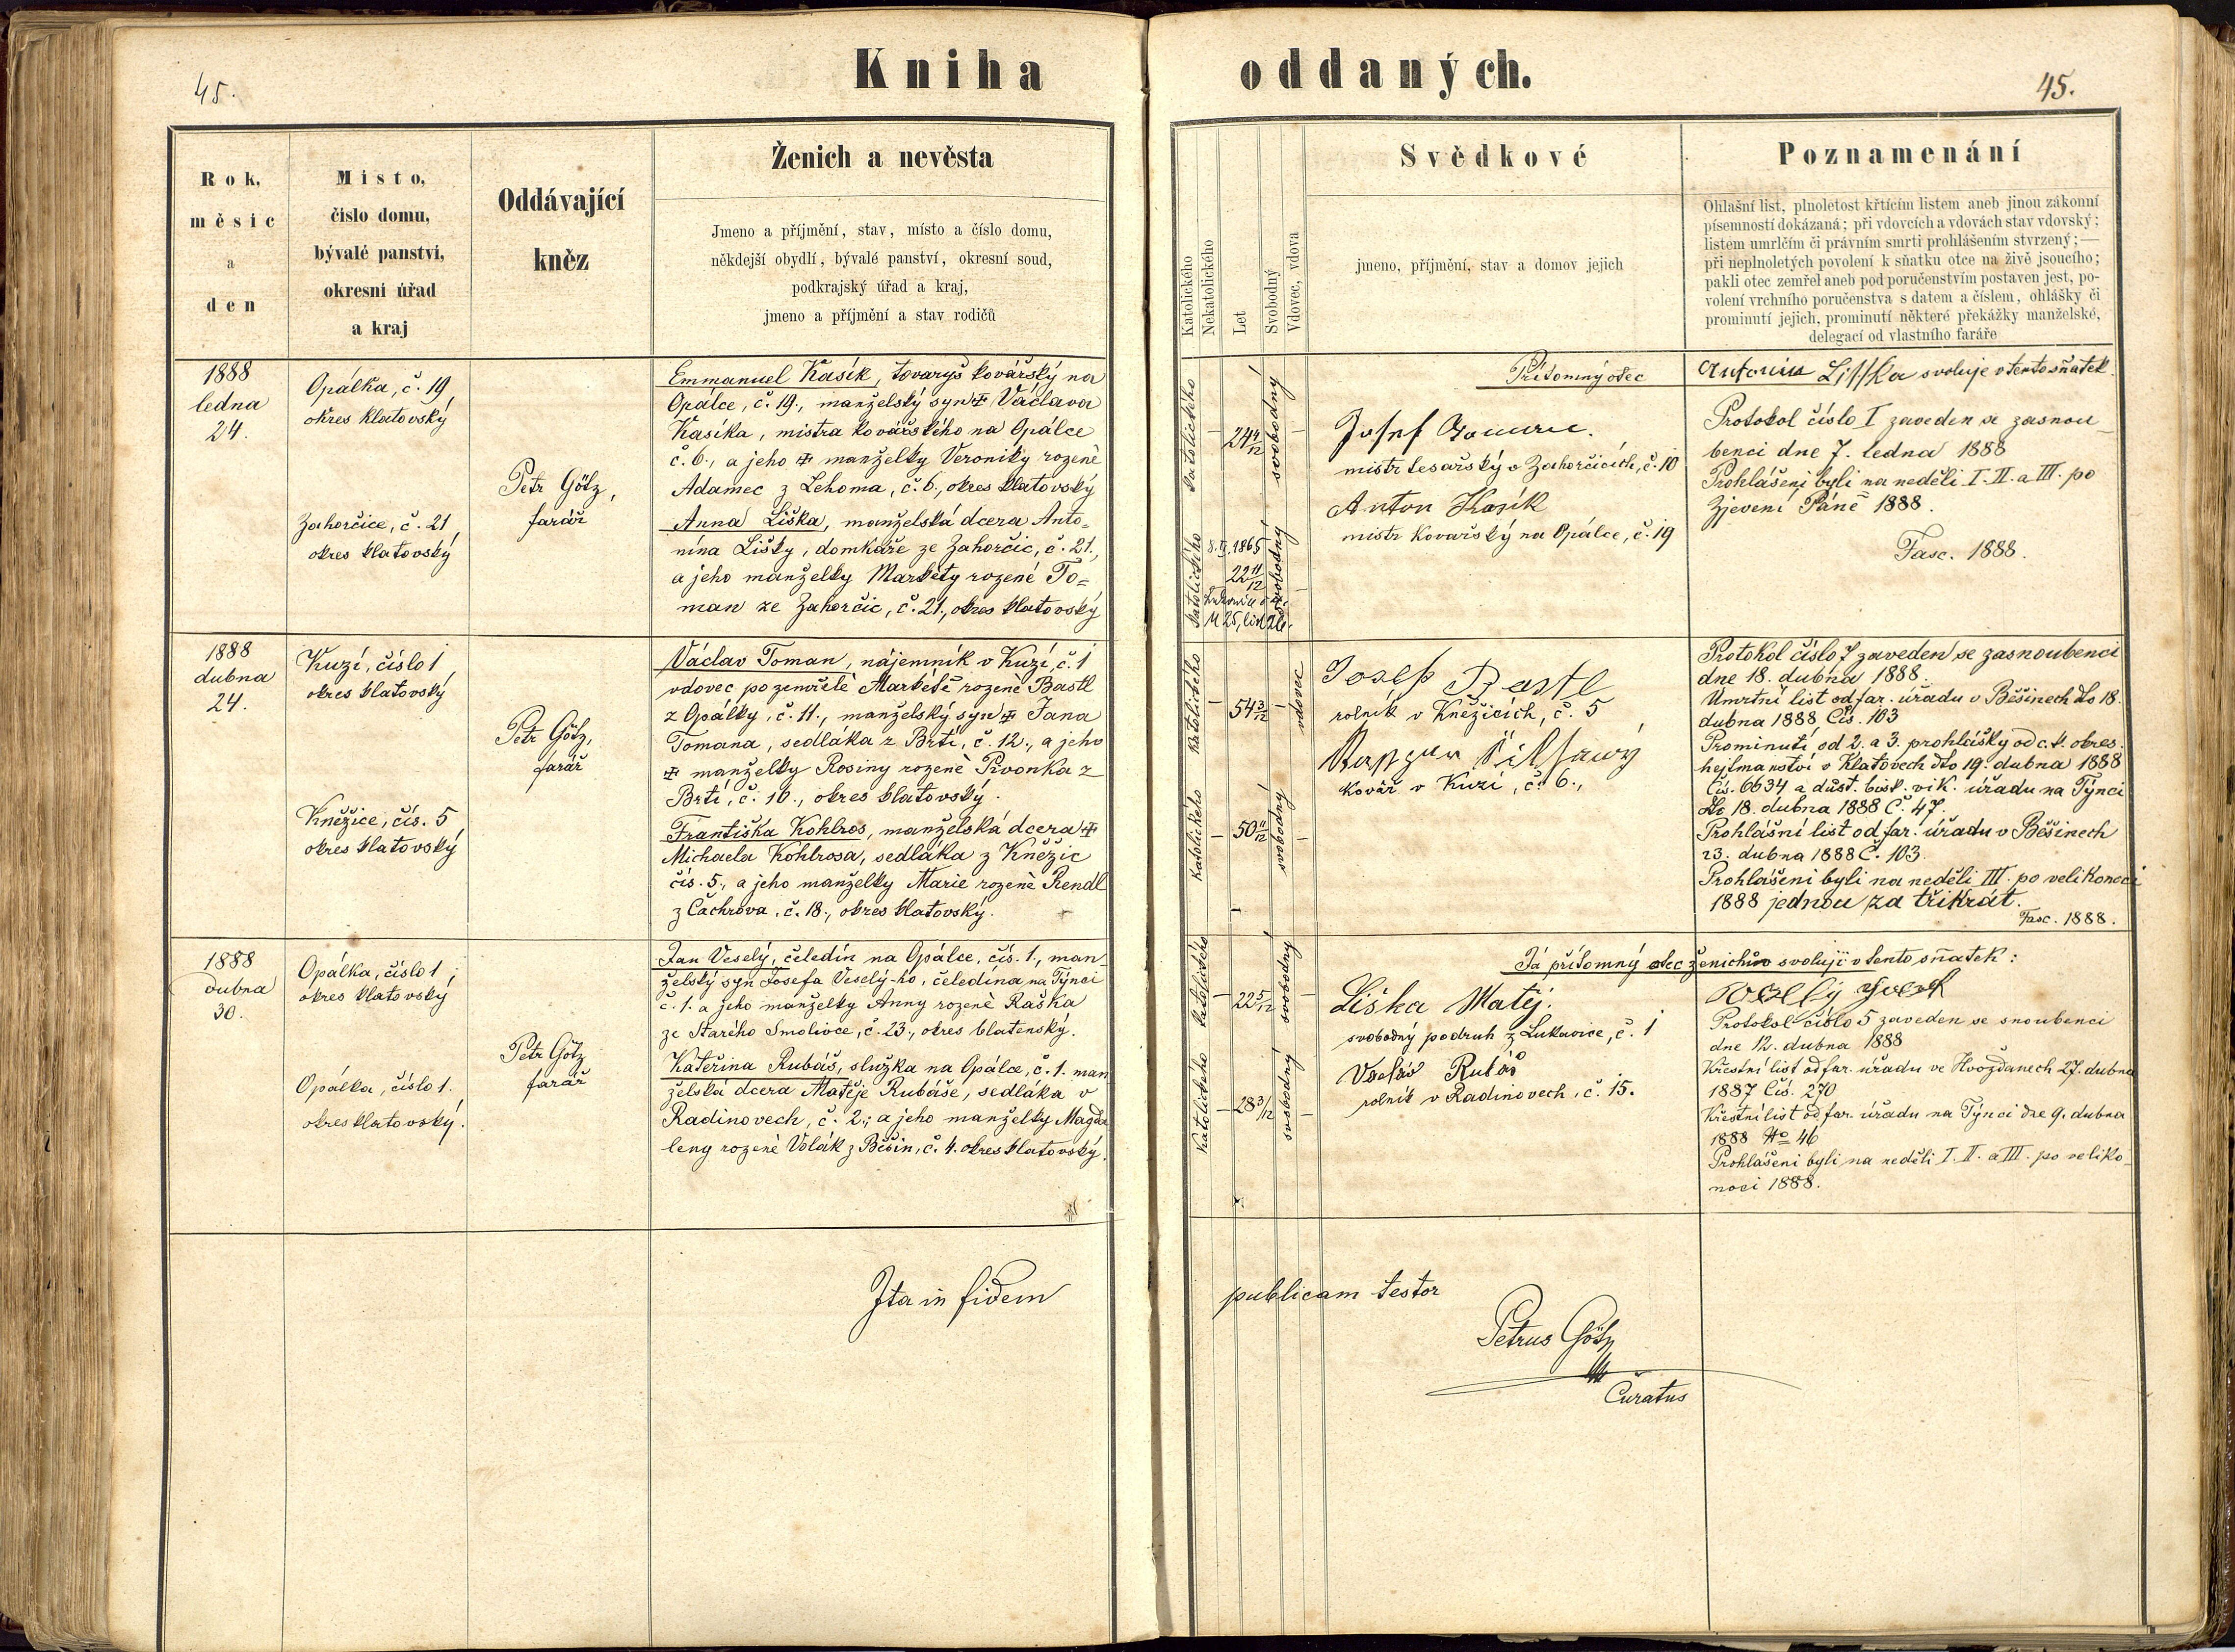 45.
Kniha oddaných.
45.
Rok,
měsíc
a
den
Místo,
číslo domu,
bývalé panství,
okresní úřad
a kraj
Oddávající
kněz
Ženich a nevěsta
Jmeno a příjmění, stav, místo a číslo domu,
někdejší obydlí, bývalé panství, okresní soud,
podkrajský úřad a kraj,
jmeno a příjmění a stav rodičů
Katolického
Nekatolického
Let
Svobodný
Vdovec, vdova
Svědkové
jmeno, příjmění, stav a domov jejich
Poznamenání
Ohlašní list, plnoletost křtícím listem aneb jinou zákonní
písemností dokázaná; při vdovcích a vdovách stav vdovský;
listem umrlčím či právním smrti prohlášením stvrzený;—
při neplnoletých povolení k sňatku otce na živě jsoucího;
pakli otec zemřel aneb pod poručenstvím postaven jest, po-
volení vrchního poručenstva s datem a číslem, ohlášky či
prominutí jejich, prominutí některé překážky manželské,
delegací od vlastního faráře
1888
ledna
24.
Opálka, č. 19,
okres klatovský
Zahorčice, č. 21,
okres klatovský
Petr Götz,
farář
Emmanuel Kasík, tovaryš kovářský na
Opálce, č. 19., manželský syn ‡ Václava
Kasíka, mistra kovářského na Opálce
č. 6., a jeho ‡ manželky Veroniky rozené
Adamec z Lehoma, č. 6., okres klatovský
Anna Liška, manželská dcera Anto=
nína Lišky, domkáře ze Zahorčic, č. 21.,
a jeho manželky Markéty rozené To=
man ze Zahorčic, č. 21., okres klatovský
katolického
24 4/12
svobodný
katolického
8. II. 1865
22 11/12
svobodný
Přítomný otec
Josef
mistr tesařský v Zahorčicích, č. 10
Anton Kasík
mistr kovařský na Opálce, č. 19
Antonín Lisska svoluje v tento sňatek.
Protokol číslo I zaveden se zasnou-
benci dne 7. ledna 1888
Prohlášeni byli na neděli I. II. a III. po
Zjevení Páně 1888.
Fasc. 1888.
1888
dubna
24.
Kuzí, číslo 1,
okres klatovský
Kněžice, čís. 5,
okres klatovský
Petr Götz,
farář
Václav Toman, nájemník v Kuzí, č. 1
vdovec po zemřelé Markétě rozené Bastl
z Opálky, č. 11., manželský syn ‡ Jana
Tomana, sedláka z Brtí, č. 12., a jeho
‡ manželky Rosiny rozené Pivonka z
Brtí, č. 10., okres klatovský.
Františka Kohlros, manželská dcera ‡
Michaela Kohlrosa, sedláka z Kněžic
čís. 5., a jeho manželky Marie rozené Rendl
z Čachrova, č. 18., okres klatovský.
katolického
54 3/12
vdovec
katolického
50 11/12
svobodný
Josef Bastl
rolník v Kněžicích, č. 5,
kovář v Kuzí, č. 6.,
Protokol číslo 7 zaveden se zasnoubenci
dne 18. dubna 1888.
Umrtní list od far. úřadu v Běšinech dto 18.
dubna 1888 Čís. 103
Prominutí od 2. a 3. prohlášky od c. k. okres.
hejtmanství v Klatovech dto 19. dubna 1888
Čís. 6634 a důst. bisk. vik. úřadu na Týnci
dto 18. dubna 1888 Č. 47.
Prohlášní list od far. úřadu v Běšinech
23. dubna 1888 Č. 103.
Prohlášeni byli na neděli III. po velikonoci
1888 jednou za třikrát.
Fasc. 1888.
1888
dubna
30.
Opálka, číslo 1,
okres klatovský
Opálka, číslo 1.
okres klatovský.
Petr Götz
farář
Jan Veselý, čeledín na Opálce, čís. 1., man-
želský syn Josefa Veselý-ho, čeledína na Týnci
č. 1. a jeho manželky Anny rozené Raška
ze Starého Smolivce, č. 23., okres blatenský.
Kateřina Rubáš, služka na Opálce, č. 1. man-
želská dcera Matěje Rubáše, sedláka v
Radinovech, č. 2.; a jeho manželky Magda-
leny rozené Volák z Běšin, č. 4. okres klatovský.
katolického
22 5/12
svobodný
katolického
28 3/12
svobodný
Já přítomný otec ženichův svoluji v tento sňatek:
Liška Matěj.
svobodný podruh z Lukavice, č. 1
Václav Rubáš
rolník v Radinovech, č. 15.
Protokol číslo 5 zaveden se snoubenci
dne 12. dubna 1888
Křestní list od far. úřadu ve Hvožďanech 27. dubna
1887 Čís. 270
Křestní list od far. úřadu na Týnci dne 9. dubna
1888 No 46
Prohlášeni byli na neděli I. II. a III. po veliko-
noci 1888.
Ita in fidem publicam testor
Petrus Götz
Curatus